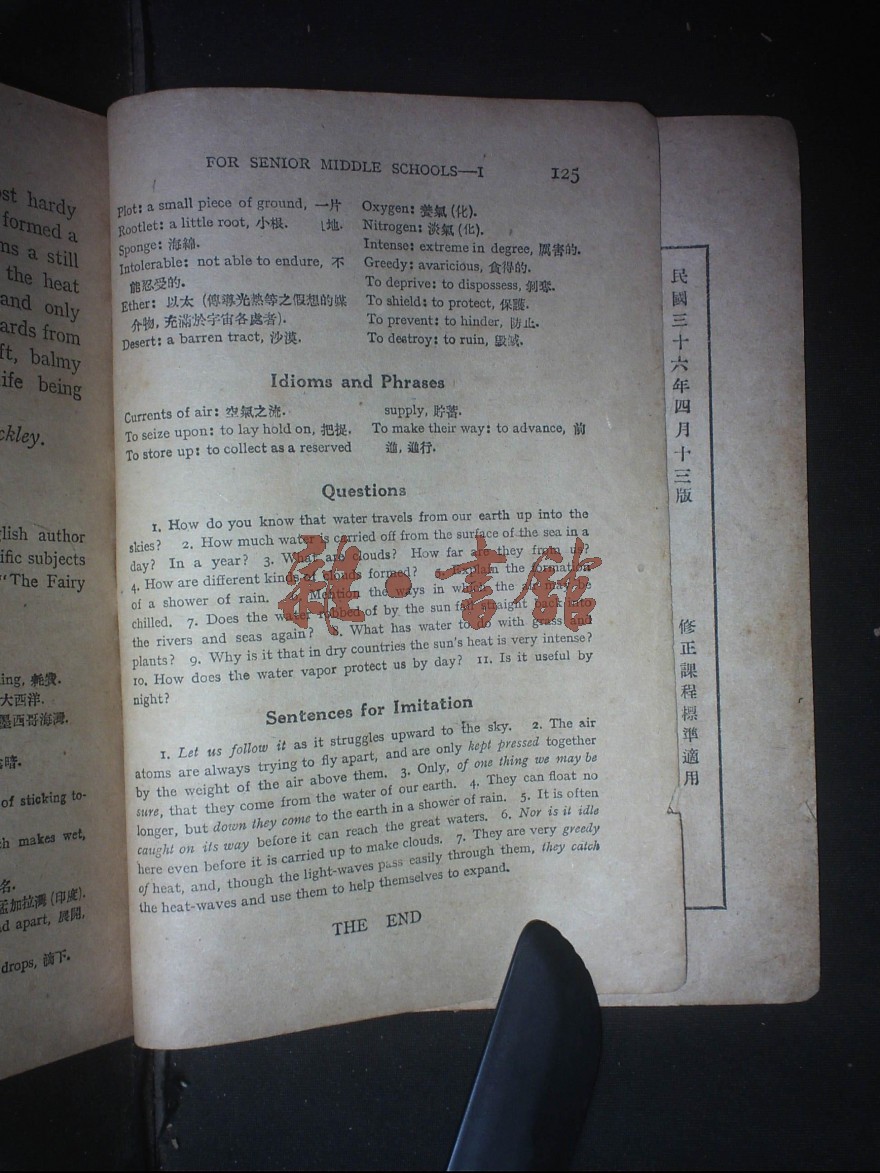 ost hardy
formed a
ms a still
the heat
and only
ards from
ft, balmy
ife being
ckley.
glish author
ific subjects
"The Fairy
ing, 耗費.
大西洋.
墨西哥海灣.
of sticking to-
ch makes wet,
名.
孟加拉灣 (印度).
d apart, 展開,
drops, 滴下.
FOR SENIOR MIDDLE SCHOOLS—I 125
Plot: a small piece of ground, 一片
Rootlet: a little root, 小根. [地.
Sponge: 海綿.
Intolerable: not able to endure, 不
能忍受的.
Ether: 以太 (傳導光熱等之假想的媒
介物, 充滿於宇宙各處者).
Desert: a barren tract, 沙漠.
Oxygen: 養氣 (化).
Nitrogen: 淡氣 (化).
Intense: extreme in degree, 厲害的.
Greedy: avaricious, 貪得的.
To deprive: to dispossess, 剝奪.
To shield: to protect, 保護.
To prevent: to hinder, 防止.
To destroy: to ruin, 毀滅.
Idioms and Phrases
Currents of air: 空氣之流.
To seize upon: to lay hold on, 把捉.
To store up: to collect as a reserved
supply, 貯蓄.
To make their way: to advance, 前
進, 進行.
Questions
1. How do you know that water travels from our earth up into the
skies? 2. How much water is carried off from the surface of the sea in a
day? In a year? 3. What are clouds? How far are they from us?
4. How are different kinds of clouds formed? 5. Explain the formation
of a shower of rain. 6. Mention the ways in which the air may be
chilled. 7. Does the water robbed of by the sun fall straight back into
the rivers and seas again? 8. What has water to do with grass and
plants? 9. Why is it that in dry countries the sun's heat is very intense?
10. How does the water vapor protect us by day? 11. Is it useful by
night?
Sentences for Imitation
1. Let us follow it as it struggles upward to the sky. 2. The air
atoms are always trying to fly apart, and are only kept pressed together
by the weight of the air above them. 3. Only, of one thing we may be
sure, that they come from the water of our earth. 4. They can float no
longer, but down they come to the earth in a shower of rain. 5. It is often
caught on its way before it can reach the great waters. 6. Nor is it idle
here even before it is carried up to make clouds. 7. They are very greedy
of heat, and, though the light-waves pass easily through them, they catch
the heat-waves and use them to help themselves to expand.
THE END
民國三十六年四月十三版
修正課程標準適用
雜·書館